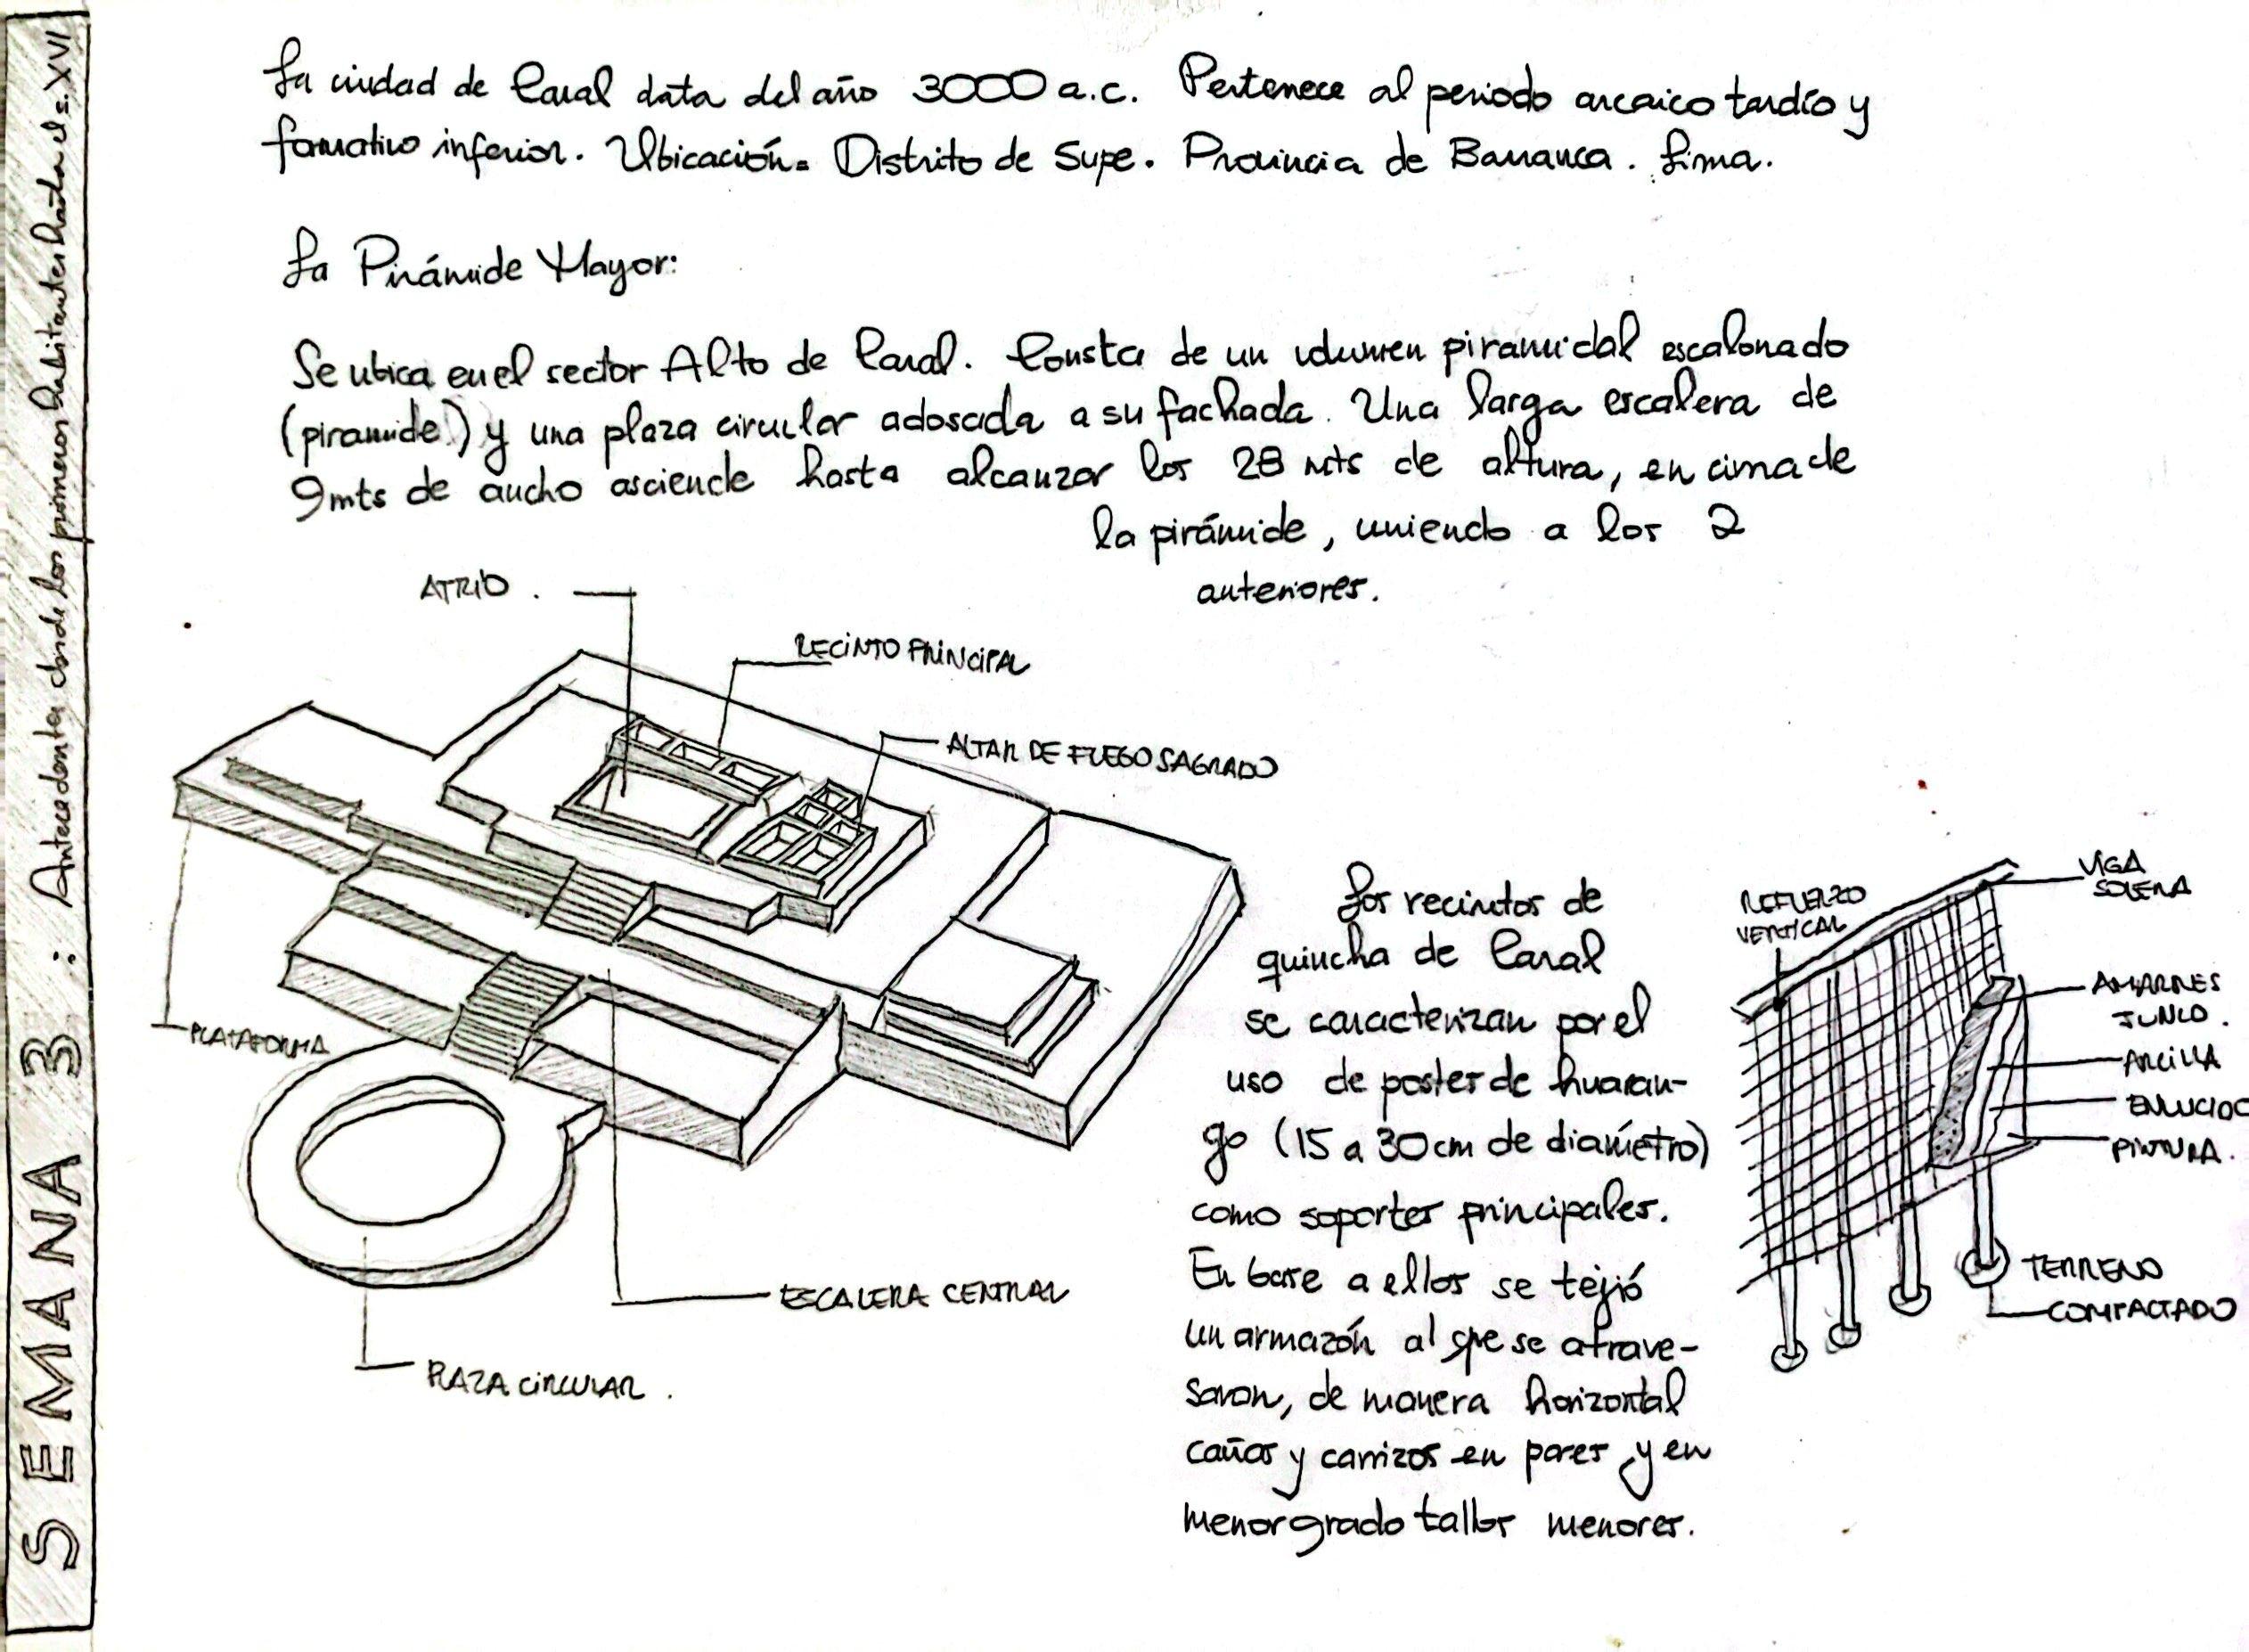 SEMANA 3 : Antecedentes desde los primeros habitantes hasta el s. XVI
La ciudad de Caral data del año 3000 a.c. Pertenece al periodo arcaico tardío y
formativo inferior. Ubicación= Distrito de Supe. Provincia de Barranca. Lima.
La Pirámide Mayor:
Se ubica en el sector Alto de Caral. Consta de un volumen piramidal escalonado
(piramide) y una plaza circular adosada a su fachada. Una larga escalera de
9mts de ancho asciende hasta alcanzar los 28 mts de altura, en cima de
la pirámide, uniendo a los 2
anteriores.
ATRIO.
RECINTO PRINCIPAL
ALTAR DE FUEGO SAGRADO
PLATAFORMA
ESCALERA CENTRAL
PLAZA CIRCULAR.
Los recintos de
quincha de Caral
se caracterizan por el
uso de postes de huaran-
go (15 a 30cm de diámetro)
como soportes principales.
En base a ellos se tejió
un armazón al que se atrave-
saron, de manera horizontal
cañas y carrizos en pares y en
menor grado tallos menores.
REFUERZO
VERTICAL
VIGA
SOLERA
AMARRES
JUNCO.
ARCILLA
ENLUCIDO
PINTURA.
TERRENO
COMPACTADO